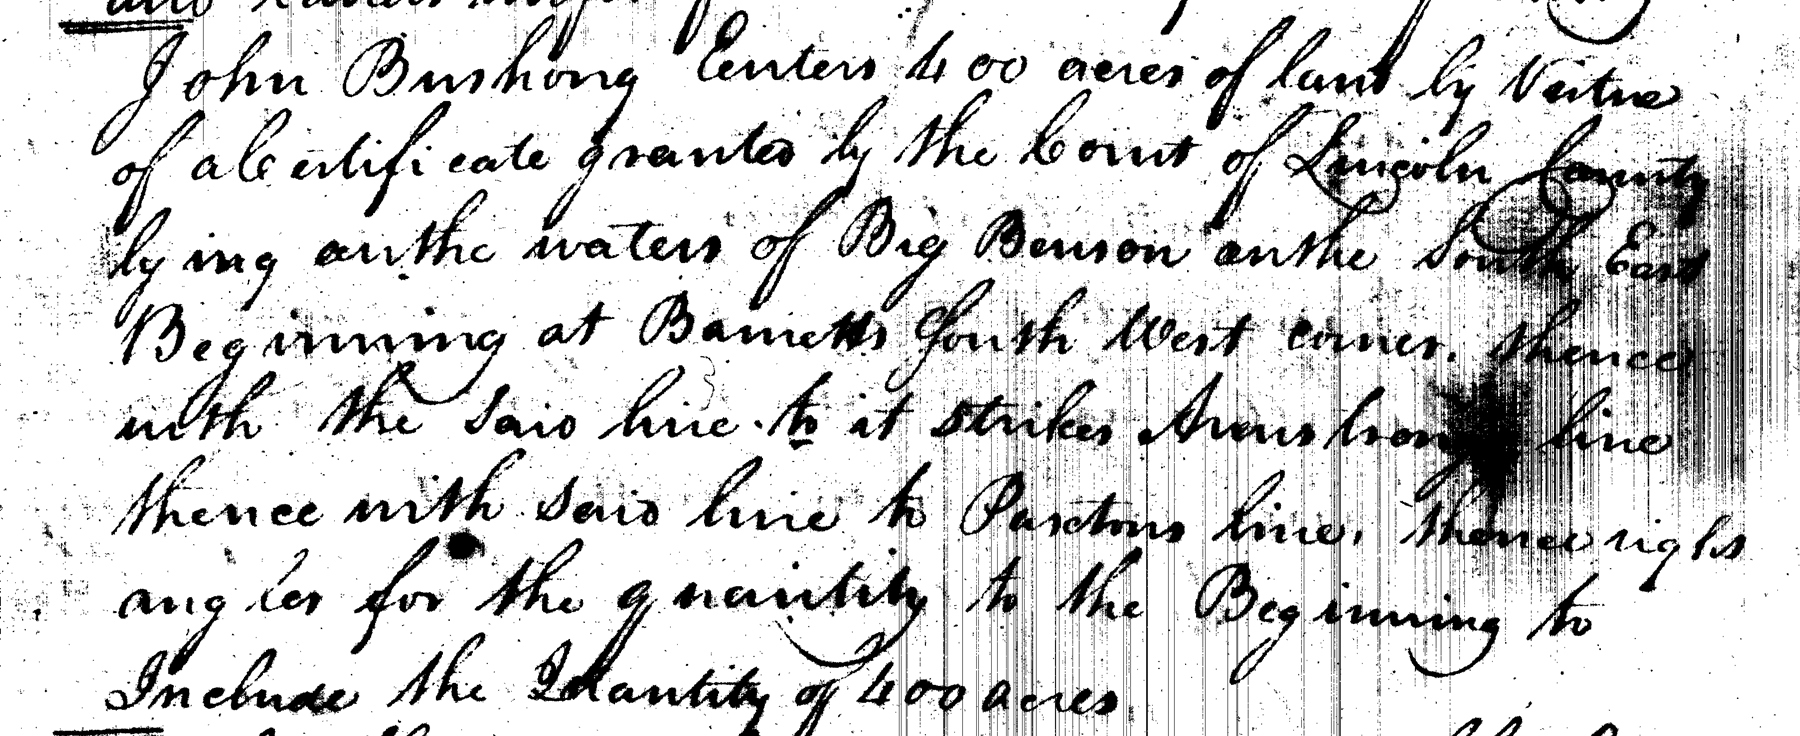 John Bushong Enters 400 acres of land by Virtue
of a Certificate granted by the Court of Lincoln County
lying on the waters of Big Benson on the South East
Beginning at Barnetts South West corner. thence
with the said line to it strikes Armstrong line
thence with said line to Paxtons line, thence right
angles for the quantity to the Beginning to
Include the Quantity of 400 acres